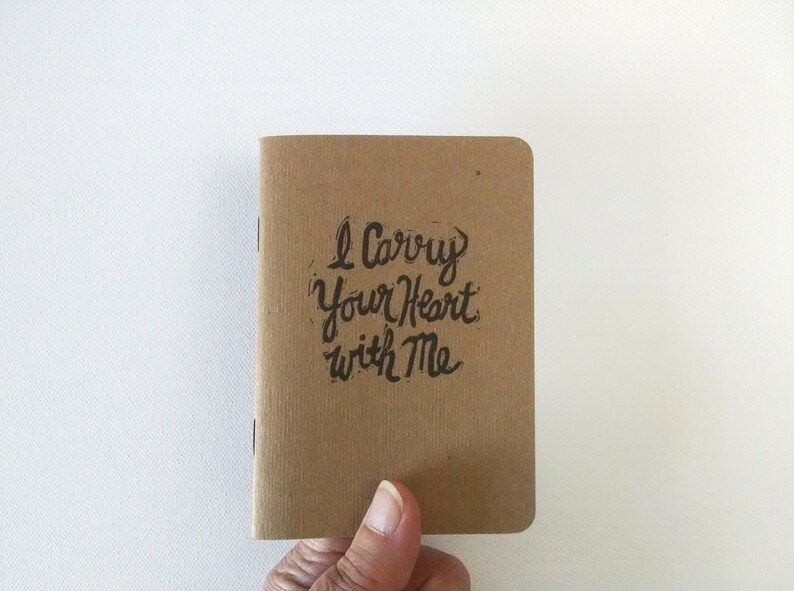 I Carry
Your Heart
with Me